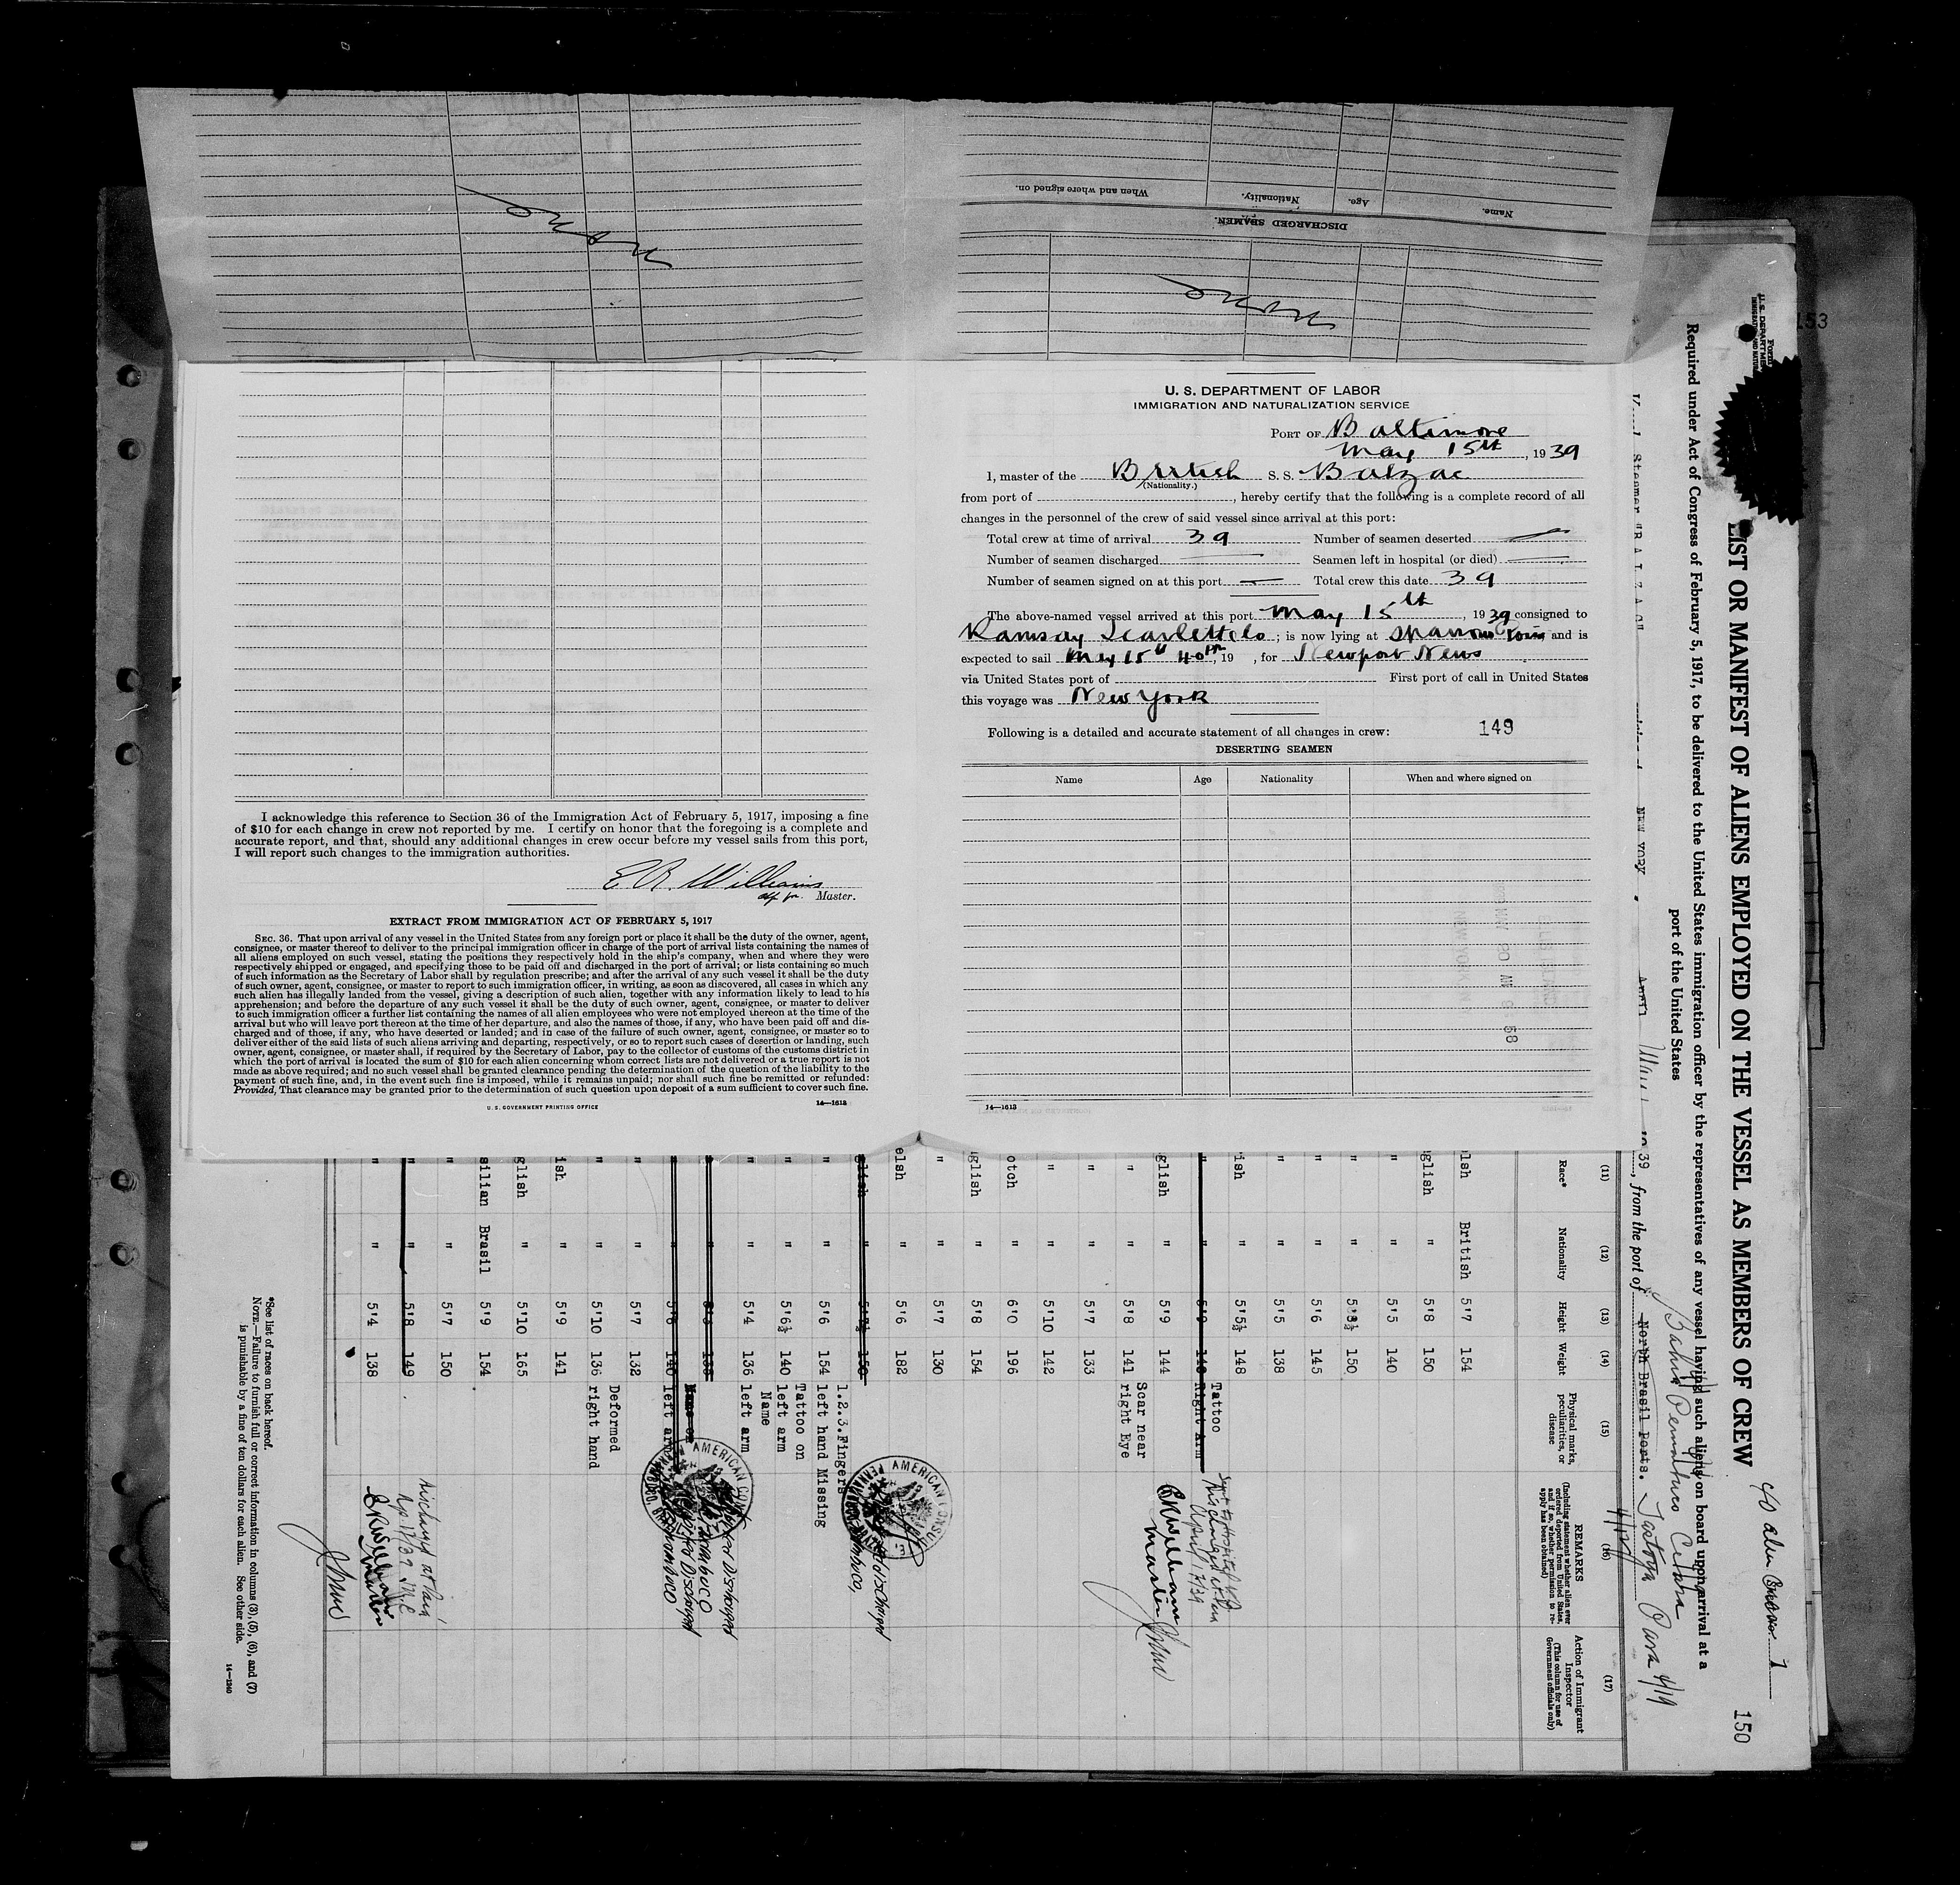 When and where signed on.
Nationality.
Age.
Name.
DISCHARGED SEAMEN.
U. S. DEPARTMENT OF LABOR
IMMIGRATION AND NATURALIZATION SERVICE
PORT OF Baltimore
May 15th, 1939
I, master of the British S. S. Balzac
(Nationality.)
from port of , hereby certify that the following is a complete record of all
changes in the personnel of the crew of said vessel since arrival at this port:
Total crew at time of arrival 39 Number of seamen deserted —
Number of seamen discharged — Seamen left in hospital (or died) —
Number of seamen signed on at this port — Total crew this date 39
The above-named vessel arrived at this port May 15th, 1939 consigned to
Ramsay Scarlett Co ; is now lying at Sparrows Point and is
expected to sail May 15th , 19 , for Newport News
via United States port of First port of call in United States
this voyage was New York
Following is a detailed and accurate statement of all changes in crew: 149
DESERTING SEAMEN
Name Age Nationality When and where signed on
14—1613
I acknowledge this reference to Section 36 of the Immigration Act of February 5, 1917, imposing a fine
of $10 for each change in crew not reported by me. I certify on honor that the foregoing is a complete and
accurate report, and that, should any additional changes in crew occur before my vessel sails from this port,
I will report such changes to the immigration authorities.
E R Williams
Master.
EXTRACT FROM IMMIGRATION ACT OF FEBRUARY 5, 1917
SEC. 36. That upon arrival of any vessel in the United States from any foreign port or place it shall be the duty of the owner, agent,
consignee, or master thereof to deliver to the principal immigration officer in charge of the port of arrival lists containing the names of
all aliens employed on such vessel, stating the positions they respectively hold in the ship's company, when and where they were
respectively shipped or engaged, and specifying those to be paid off and discharged in the port of arrival; or lists containing so much
of such information as the Secretary of Labor shall by regulation prescribe; and after the arrival of any such vessel it shall be the duty
of such owner, agent, consignee, or master to report to such immigration officer, in writing, as soon as discovered, all cases in which any
such alien has illegally landed from the vessel, giving a description of such alien, together with any information likely to lead to his
apprehension; and before the departure of any such vessel it shall be the duty of such owner, agent, consignee, or master to deliver
to such immigration officer a further list containing the names of all alien employees who were not employed thereon at the time of the
arrival but who will leave port thereon at the time of her departure, and also the names of those, if any, who have been paid off and dis-
charged and of those, if any, who have deserted or landed; and in case of the failure of such owner, agent, consignee, or master so to
deliver either of the said lists of such aliens arriving and departing, respectively, or so to report such cases of desertion or landing, such
owner, agent, consignee, or master shall, if required by the Secretary of Labor, pay to the collector of customs of the customs district in
which the port of arrival is located the sum of $10 for each alien concerning whom correct lists are not delivered or a true report is not
made as above required; and no such vessel shall be granted clearance pending the determination of the question of the liability to the
payment of such fine, and, in the event such fine is imposed, while it remains unpaid; nor shall such fine be remitted or refunded:
Provided, That clearance may be granted prior to the determination of such question upon deposit of a sum sufficient to cover such fine.
U. S. GOVERNMENT PRINTING OFFICE
14—1613
153
150
Form
U. S. DEPARTMENT
LIST OR MANIFEST OF ALIENS EMPLOYED ON THE VESSEL AS MEMBERS OF CREW
Required under Act of Congress of February 5, 1917, to be delivered to the United States immigration officer by the representatives of any vessel having such aliens on board upon arrival at a
port of the United States
Steamer "BALZAC" NEW YORK April 1939, from the port of North Brasil Ports.
Bahia Pernambuco Ceara
Para 4/19
(11) (12) (13) (14) (15) (16) (17)
Race* Nationality Height Weight Physical marks, peculiarities, or disease
REMARKS (Including statement whether alien ever ordered deported from United States, and if so, whether permission to re-apply has been obtained)
Action of Immigrant Inspector (This column for use of Government officials only)
lsh British 5'7 154
glish " 5'8 150
" " 5'5 140
" " 5'3½ 150
" " 5'6 145
" " 5'5 138
ish " 5'5½ 148
" " 5'9 148 Tattoo Right Arm
glish " 5'9 144
" " 5'8 141 Scar near right Eye
" " 5'7 133
" " 5'10 142
otch " 6'0 196
glish " 5'8 154
" " 5'7 130
elsh " 5'6 182
glish " 5'7½ 150
" " 5'6 154 1.2.3.Fingers left hand Missing
" " 5'6½ 140 Tattoo on left arm
" " 5'4 136 Name left arm
" " 5'3 138
" " 5'6 140 Name on left arm
" " 5'7 132
" " 5'10 136 Deformed right hand
ish " 5'9 141
glish " 5'10 165
silian Brasil 5'9 154
" " 5'7 150
" " 5'8 149
" " 5'4 138
Discharged
April 7/39
ERWilliams
Master
AMERICAN CONSUL
PERNAMBUCO, BRAZIL
Discharged
Pernambuco
Discharged at Para
ERWilliams
Master
*See list of races on back hereof.
NOTE.—Failure to furnish full or correct information in columns (3), (5), (6), and (7)
is punishable by a fine of ten dollars for each alien. See other side.
14—1240